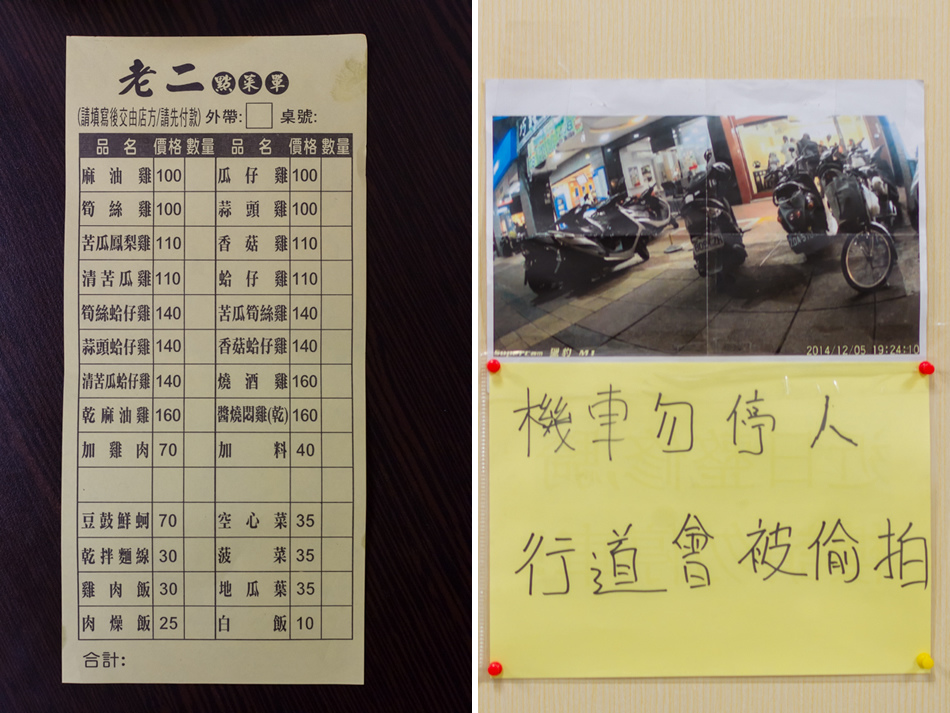 老二點菜單
(請填寫後交由店方/請先付款) 外帶: 桌號:
品名 價格 數量 品名 價格 數量
麻油雞 100 瓜仔雞 100
筍絲雞 100 蒜頭雞 100
苦瓜鳳梨雞 110 香菇雞 110
清苦瓜雞 110 蛤仔雞 110
筍絲蛤仔雞 140 苦瓜筍絲雞 140
蒜頭蛤仔雞 140 香菇蛤仔雞 140
清苦瓜蛤仔雞 140 燒酒雞 160
乾麻油雞 160 醬燒悶雞(乾) 160
加雞肉 70 加料 40
豆鼓鮮蚵 70 空心菜 35
乾拌麵線 30 菠菜 35
雞肉飯 30 地瓜葉 35
肉燥飯 25 白飯 10
合計:
2014/12/05 19:24:10
機車勿停人
行道會被偷拍